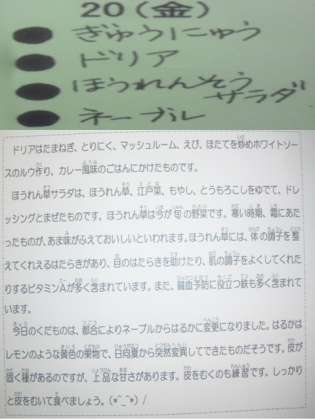 20(金)
ぎゅうにゅう
ドリア
ほうれんそう
サラダ
ネーブル
ドリアはたまねぎ、とりにく、マッシュルーム、えび、ほたてを炒めホワイトソー
スのルウ作り、カレー風味のごはんにかけたものです。
ほうれん草サラダは、ほうれん草、江戸菜、もやし、とうもろこしをゆでて、ドレ
ッシングとまぜたものです。ほうれん草は今が旬の野菜です。寒い時期、霜にあた
ったものが、あま味がふえておいしいといわれます。ほうれん草には、体の調子を整
えてくれえるはたらきがあり、目のはたらきを助けたり、肌の調子をよくしてくれた
りするビタミンAが多く含まれています。また、貧血予防に役立つ鉄も多く含まれて
います。
今日のくだものは、都合によりネーブルからはるかに変更になりました。はるかは
レモンのような黄色の果物で、日向夏から突然変異してできたものだそうです。皮が
固く種があるのですが、上品な甘さがあります。皮をむくのも練習です。しっかり
と皮をむいて食べましょう。(*^_^*) /